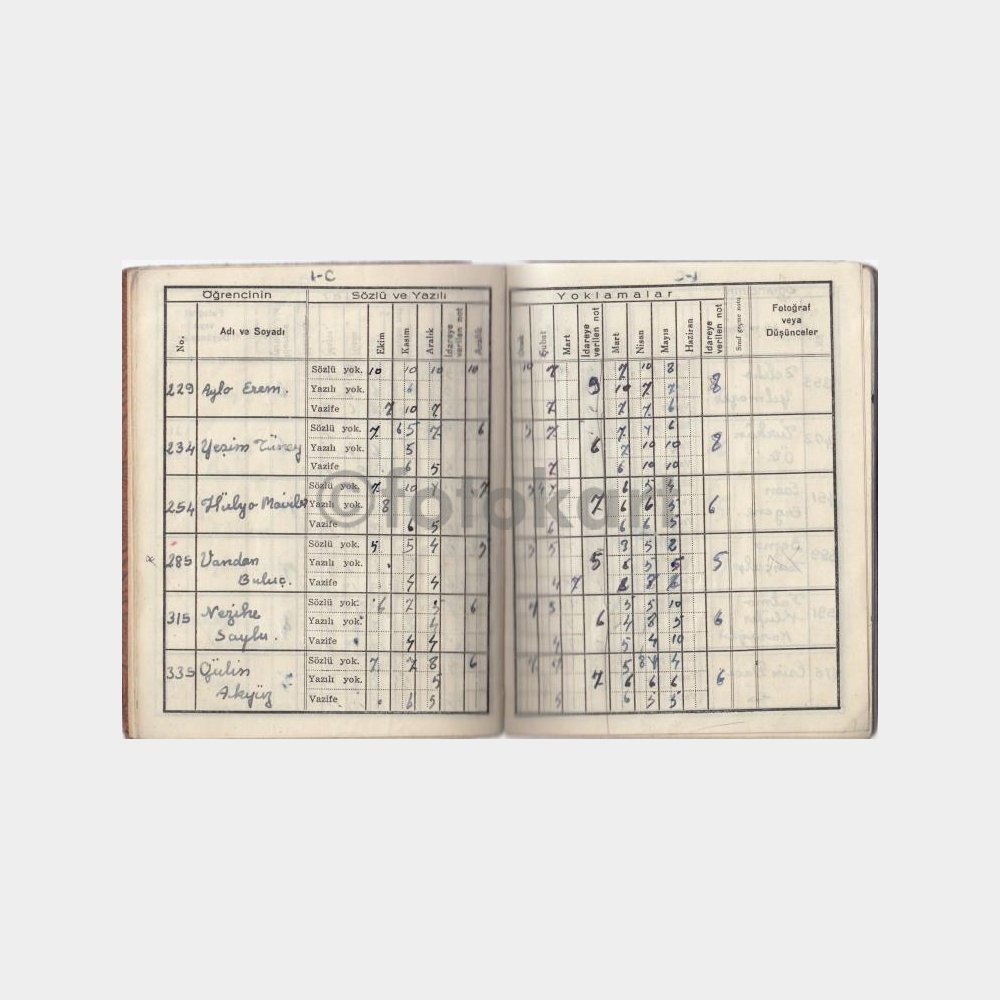 1-C
1-C
Öğrencinin Sözlü ve Yazılı Yoklamalar
No. Adı ve Soyadı Ekim Kasım Aralık İdareye verilen not Aralık Ocak Şubat Mart İdareye verilen not Mart Nisan Mayıs Haziran İdareye verilen not Sınıf geçme notu
Fotoğraf
veya
Düşünceler
Sözlü yok. 10 10 10 10 10 7 7 10 8
229 Ayla Erem. Yazılı yok. 6 9 10 7 7 8
Vazife 7 10 7 7 7 7 6
Sözlü yok. 7 6 5 7 6 5 7 7 6
234 Yeşim Türay Yazılı yok. 5 6 7 10 10 8
Vazife 6 5 7 6 10 10
Sözlü yok. 7 10 7 6 5 4
254 Hülya Yazılı yok. 8 7 6 6 5 6
Vazife 6 5 6 6 6 5
Sözlü yok. 5 5 4 5 5 3 5 2
285 Vandan Yazılı yok. 5 6 5 5 5
Buluç. Vazife 4 4 4 7 8
Sözlü yok. 6 7 5 6 5 5 10
315 Nezihe Yazılı yok. 4 6 4 8 5 6
Saylu. Vazife 4 4 4 5 4 10
Sözlü yok. 7 7 8 6 5 4
335 Gülin Yazılı yok. 5 7 6 6 6 6
Akyüz Vazife 6 5 5 6 5 5
©fotokart